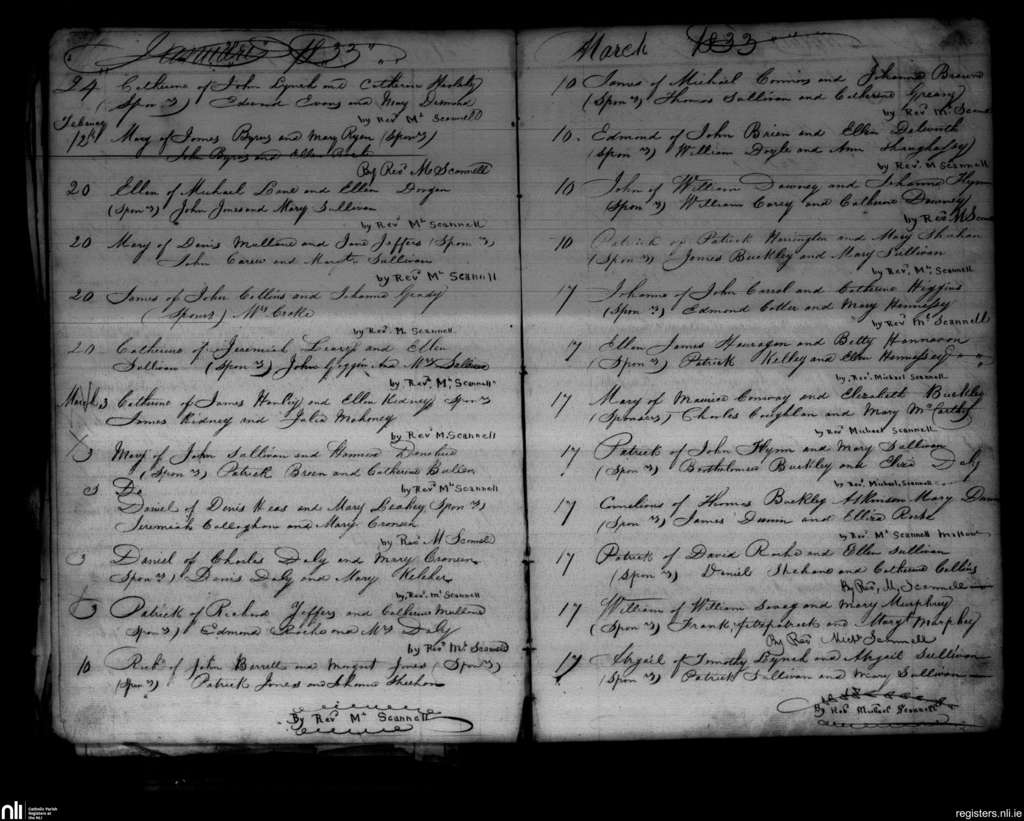 January 1833
24 Catherine of John Lynch and Catherin
(Spon rs) Edmond Evans and Mary Desmond
by Revd Ml Scannell
February
12th Mary of James Byrns and Mary Ryan (Spon rs)
John Byrns and Ellen
By Revd M Scannell
20 Ellen of Michael Lane and Ellen Dorgan
(Spon rs) John Jones and Mary Sullivan
by Revd Ml Scannell
20 Mary of Denis Mullane and Jane Jeffers (Spon rs)
John Carew and Margt Sullivan
by Revd Ml Scannell
20 James of John Collins and Johanna Grady
(Spons) Mrs Croke
by Revd M. Scannell
20 Catherine of Jeremiah Leary and Ellen
Sullivan (Spon rs) John Geggin And Mrs Sullivan
by Revd Ml Scannell
March 3 Catherine of James Henley and Ellen Kidney Spon rs
James Kidney and Julia Mahoney
by Revd M. Scannell
3 Mary of John Sullivan and Donohue
(Spon rs) Patrick Breen and Catherine
by Revd Ml Scannell
3 Do
Daniel of Denis and Mary Leahey Spon rs)
Jeremiah Callaghan and Mary Cronean
by Revd M Scannell
3 Daniel of Charles Daly and Mary Cronean
Spon rs) Denis Daly and Mary Keleher
by Revd Ml Scannell
3 Patrick of Richard Jeffers and Catherine Mullane
Spon rs) Edmond Roche and Mrs Daly
by Revd Ml Scannell
10 Richd of John Barrett and Margret Jones (Spon rs)
(Spon rs) Patrick Jones and Johanna Sheehan
By Revd Ml Scannell
March 1833
10 James of Michael Connors and Johanna Brown
(Spon rs) Thomas Sullivan and Catherine Greany
by Revd Ml Scannell
10. Edmond of John Brien and Ellen
(Spon rs) William Doyle and Ann Shaughnessy)
by Revd. M Scannell
10 John of William Downey and Johanna Flynn
Spon rs) William Carey and Catherine Downey
by Revd M Scannell
10 Patrick of Patrick Harrington and Mary Shehan
(Spon rs) James Buckley and Mary Sullivan
by Revd, Ml, Scannell
17 Johanna of John Carrol and Catherine Higgins
(Spon rs) Edmond Cotter and Mary Hennessy
by Revd Ml Scannell
17 Ellen James and Betty Hannavan
(Spon rs) Patrick Kelley and Ellen Hennessey
by, Revd. Michael Scannell
17 Mary of Maurice Conway and Elizabeth Buckley
(Sponsers) Charles Coughlan and Mary McCarthy
by Revd Michael Scannell.
17 Patrick of John Flynn and Mary Sullivan
(Spon rs) Bartholomew Buckley and Eliza Daly
by Revd, Michael, Scannell
17 Cornelious of Thomas Buckley Mary
(Spon rs) James and Elliza Roche
by Revd Ml Scannell Mallow
17 Patrick of David Roche and Ellen Sullivan
(Spon rs) Daniel Shehane and Catherine Collins
By Rev, M, Scannell
17 William of William Savag and Mary Murphey
(Spon rs) Frank, fitzpatrick and Margt Murphey
By Rev Michl Scannell
17 Abgail of Timothy Lynch and Abgail Sullivan
(Spon rs) Patrick Sullivan and Mary Sullivan
By Revd Michael Scannell
nli
Catholic Parish
Registers at
the NLI
registers.nli.ie